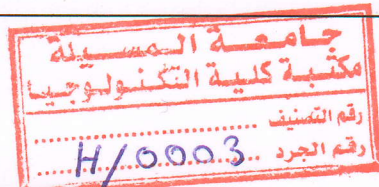 جامعة المسيلة
مكتبة كلية التكنولوجيا
رقم التصنيف ....................
رقم الجرد ....H/0003....